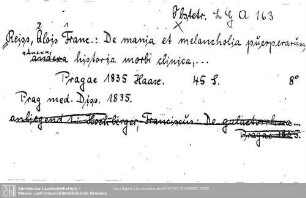 Obstetr. 4 G A 163
Reiss, Alois Franc.: De mania et melancholia puerperarum,
adnexa historia morbi clinica,...
Pragae 1835 Haase. 45 S. 8°
Prag med. Diss. 1835.
Franciscus: De
Pragae 1835.
Sächsische Landesbibliothek -
Staats- und Universitätsbibliothek Dresden